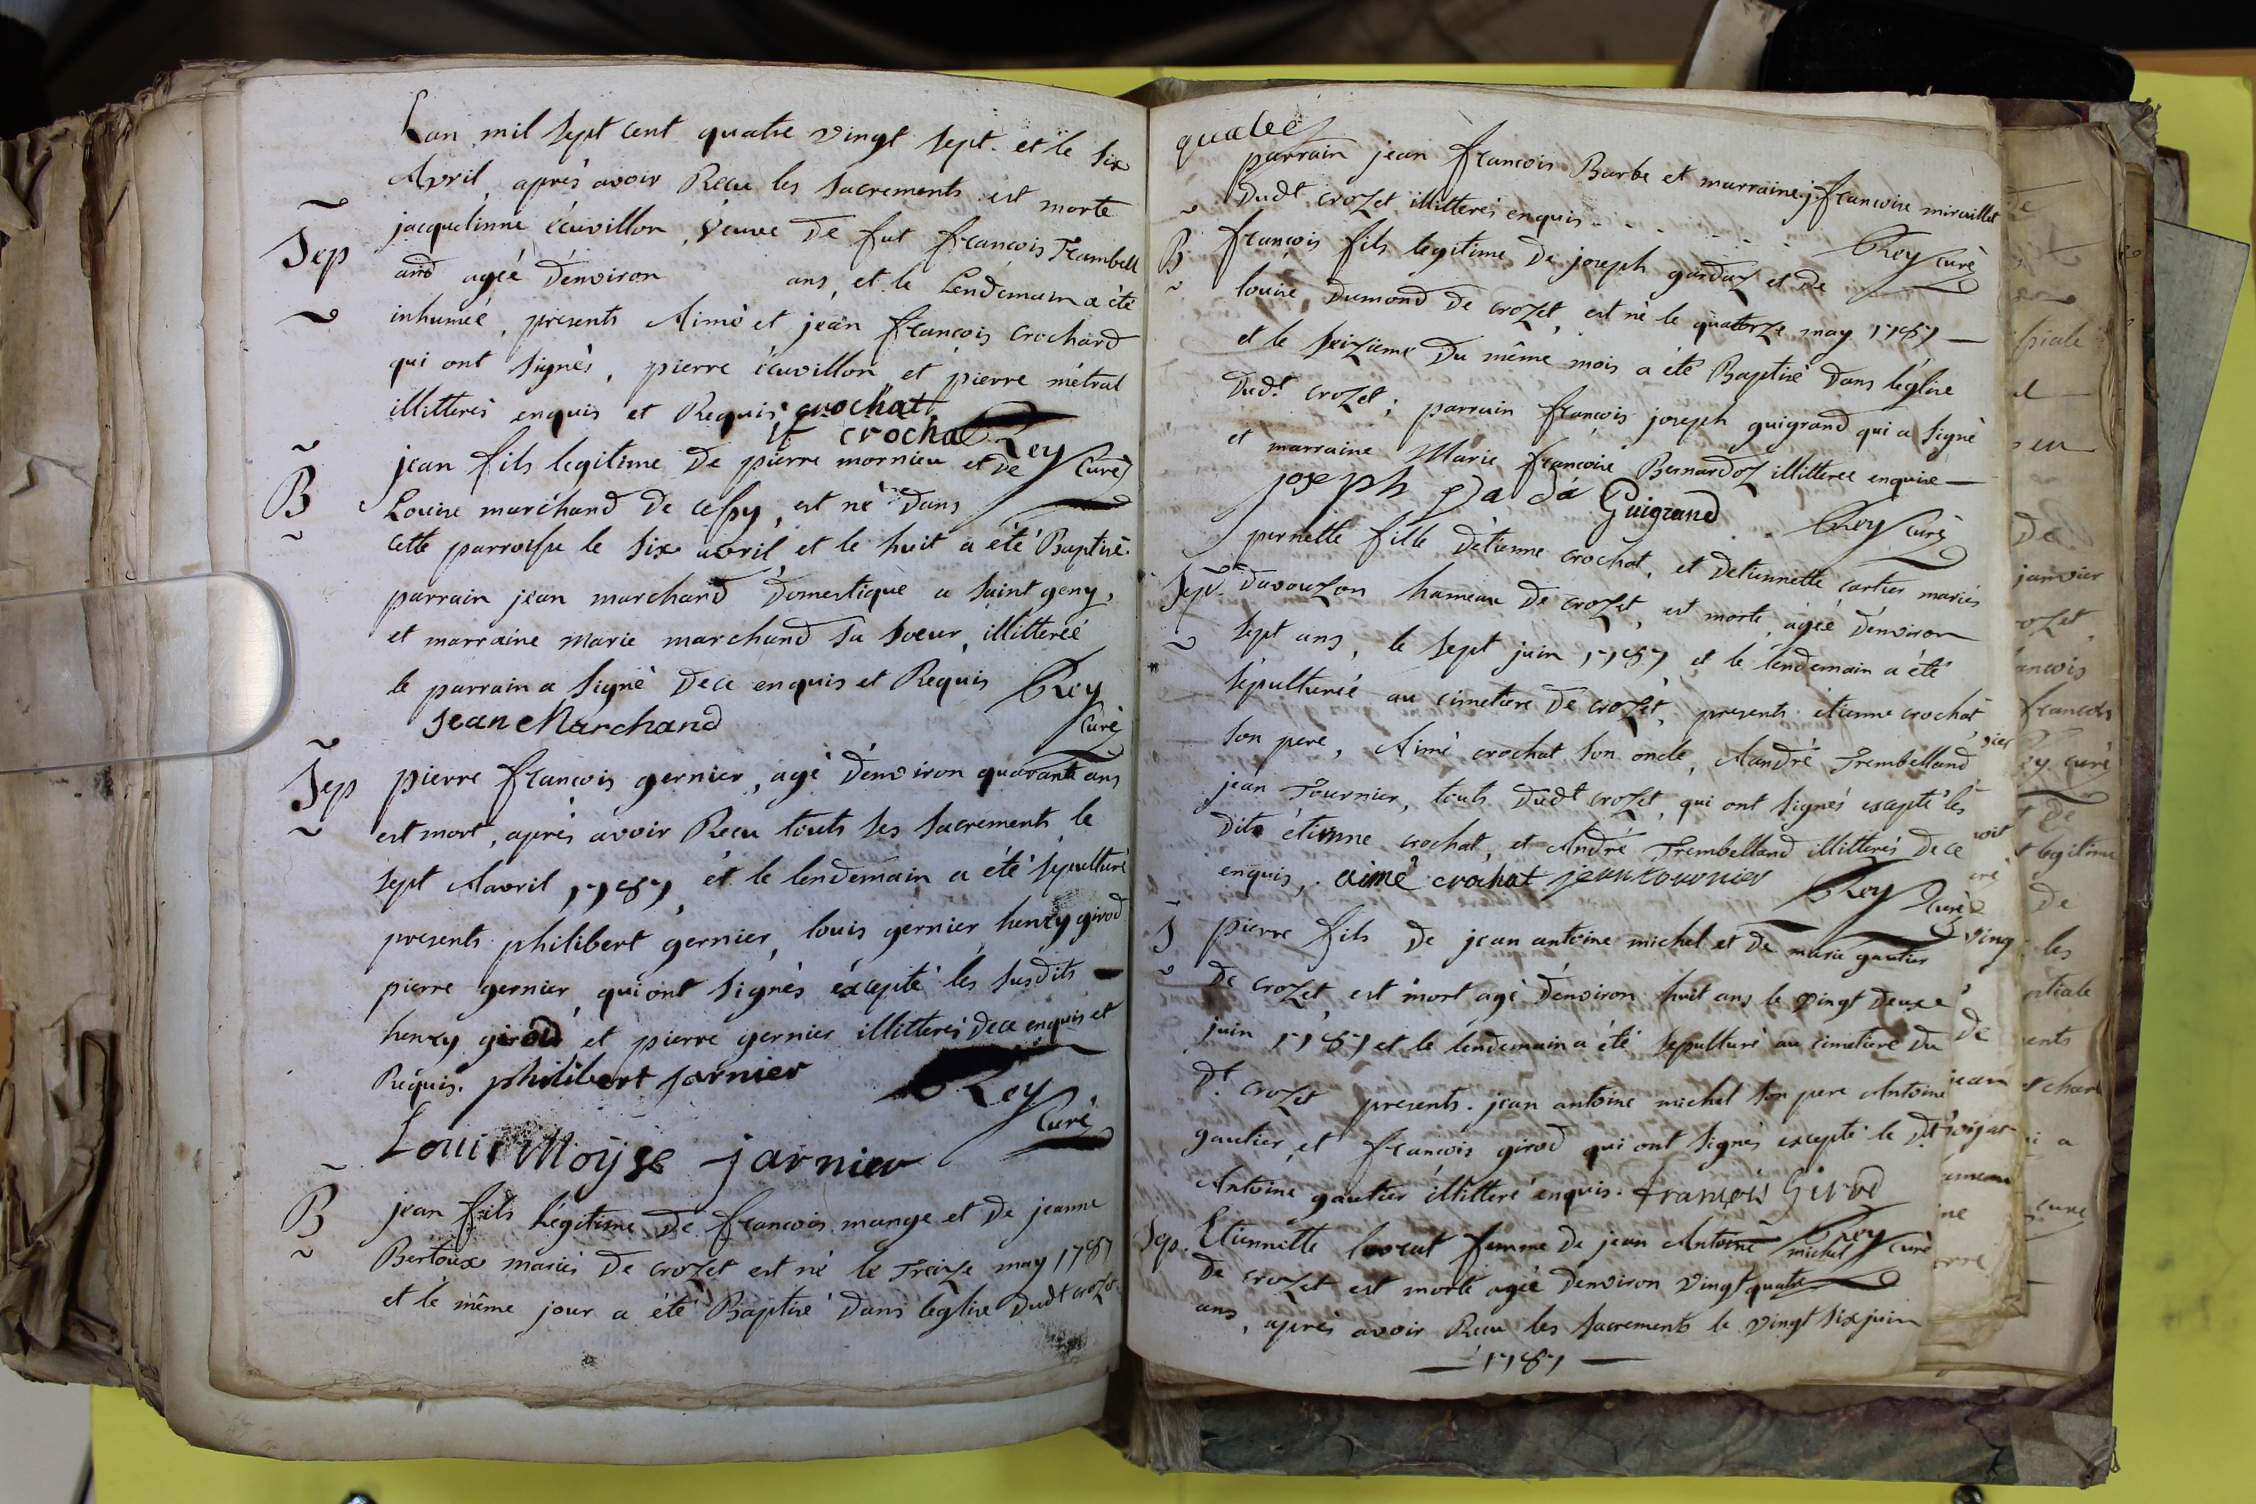 Lan mil Sept cent quatre vingt Sept. et le Six
Avril, aprés avoir Recu les Sacrements est morte
Sep
jacquelinne écuvillon, veuve De fut françois Trambell
and agéé D'environ ans, et le Lendemain a été
inhumeé, presents Aimé et jean françois Crochard
qui ont Signés, pierre écuvillon et pierre métral
illitterés enquis et Requis crochat
crochat Rey Curé
B
jean fils legitime De pierre mornieu et De
Louise marchand De Cessy, est né Dans
cette parroisse le Six avril et le huit a été Baptisé.
parrain jean marchand Domestique a Saint geny,
et marraine marie marchand Sa Soeur, illitteréé
le parrain a Signé De ce enquis et Requis Rey
jean Marchand Curé
Sep
pierre françois gernier, agé D'environ quarante ans
est mort, aprés avoir Recu touts Ses Sacrements le
Sept Mavril 1787, et le lendemain a été Sepulturé
presents philibert gernier, louis gernier, henry girod
pierre gernier, qui ont Signés éxcepté les Susdits
henry girod et pierre gernier illitterés De ce enquis et
Requis. philibert jarnier Rey
Curé
Louis Moyse jarnier
B
jean fils légitime De françois mange et De jeanne
Bertoux mariés De crozet est né le Treize may 1787
et le même jour a été Baptisé Dans leglise Dudt crozet
parrain jean françois Barbe et marraine françoise miraillet
Dudt crozet illitterés enquis Rey Curé
B
françois fils legitime De joseph gardaz et De
louise Dumond De crozet, est né le quatorze may 1787
et le Seizieme Du même mois a été Baptisé Dans léglise
Dudt crozet; parrain françois joseph guigrand qui a Signé
et marraine Marie françoise Bernardoz illitterée enquise
joseph Guigrand Rey Curé
pernette fille D'étienne crochat, et Detiennette cartier mariés
Sepe. Davouzon hameau De crozet, est morte, agéé D'environ
Sept ans, le Sept juin 1787 et le lendemain a été
Sépulturéé au cimetiere De crozet, presents étienne crochat
Son pere, Aimé crochat Son oncle, André Trembelland
jean Fournier, touts Dudt crozet, qui ont Signés excepté les
Dits étienne crochat, et André Trembelland illitterés De ce
enquis, aimé crochat jean tournier Rey Curé
S
pierre fils De jean antoine michel et De marie gautier
De crozet, est mort agé D'environ huit ans le vingt Deuxe
juin 1787 et le lendemain a été Sepulturé au cimetiere Du
Dt. crozet presents. jean antoine michel Son pere Antoine
gautier, et françois girod qui ont Signés excepté le Dt
Antoine gautier illitteré enquis. françois Girod
Rey Curé
Sep. Etiennette femme De jean Antoine michel
De crozet est morte agéé Denviron vingt quatre
ans, aprés avoir Recu les Sacrements le vingt Six juin
1787